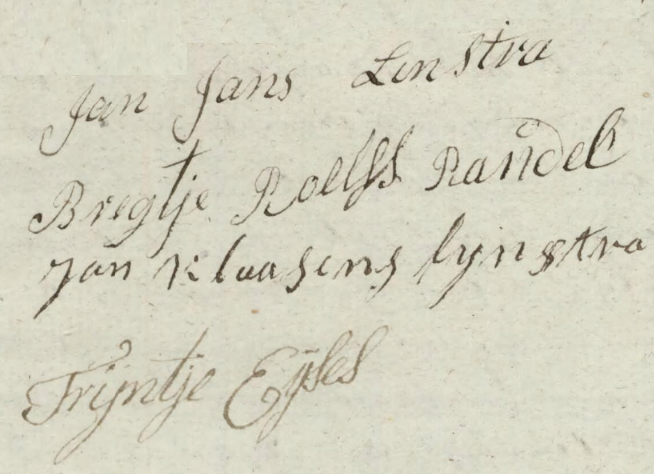 Jan Jans Linstra
Bregtje Roelfs Randel
Jan Klaasens lynstra
Trijntje Eijses